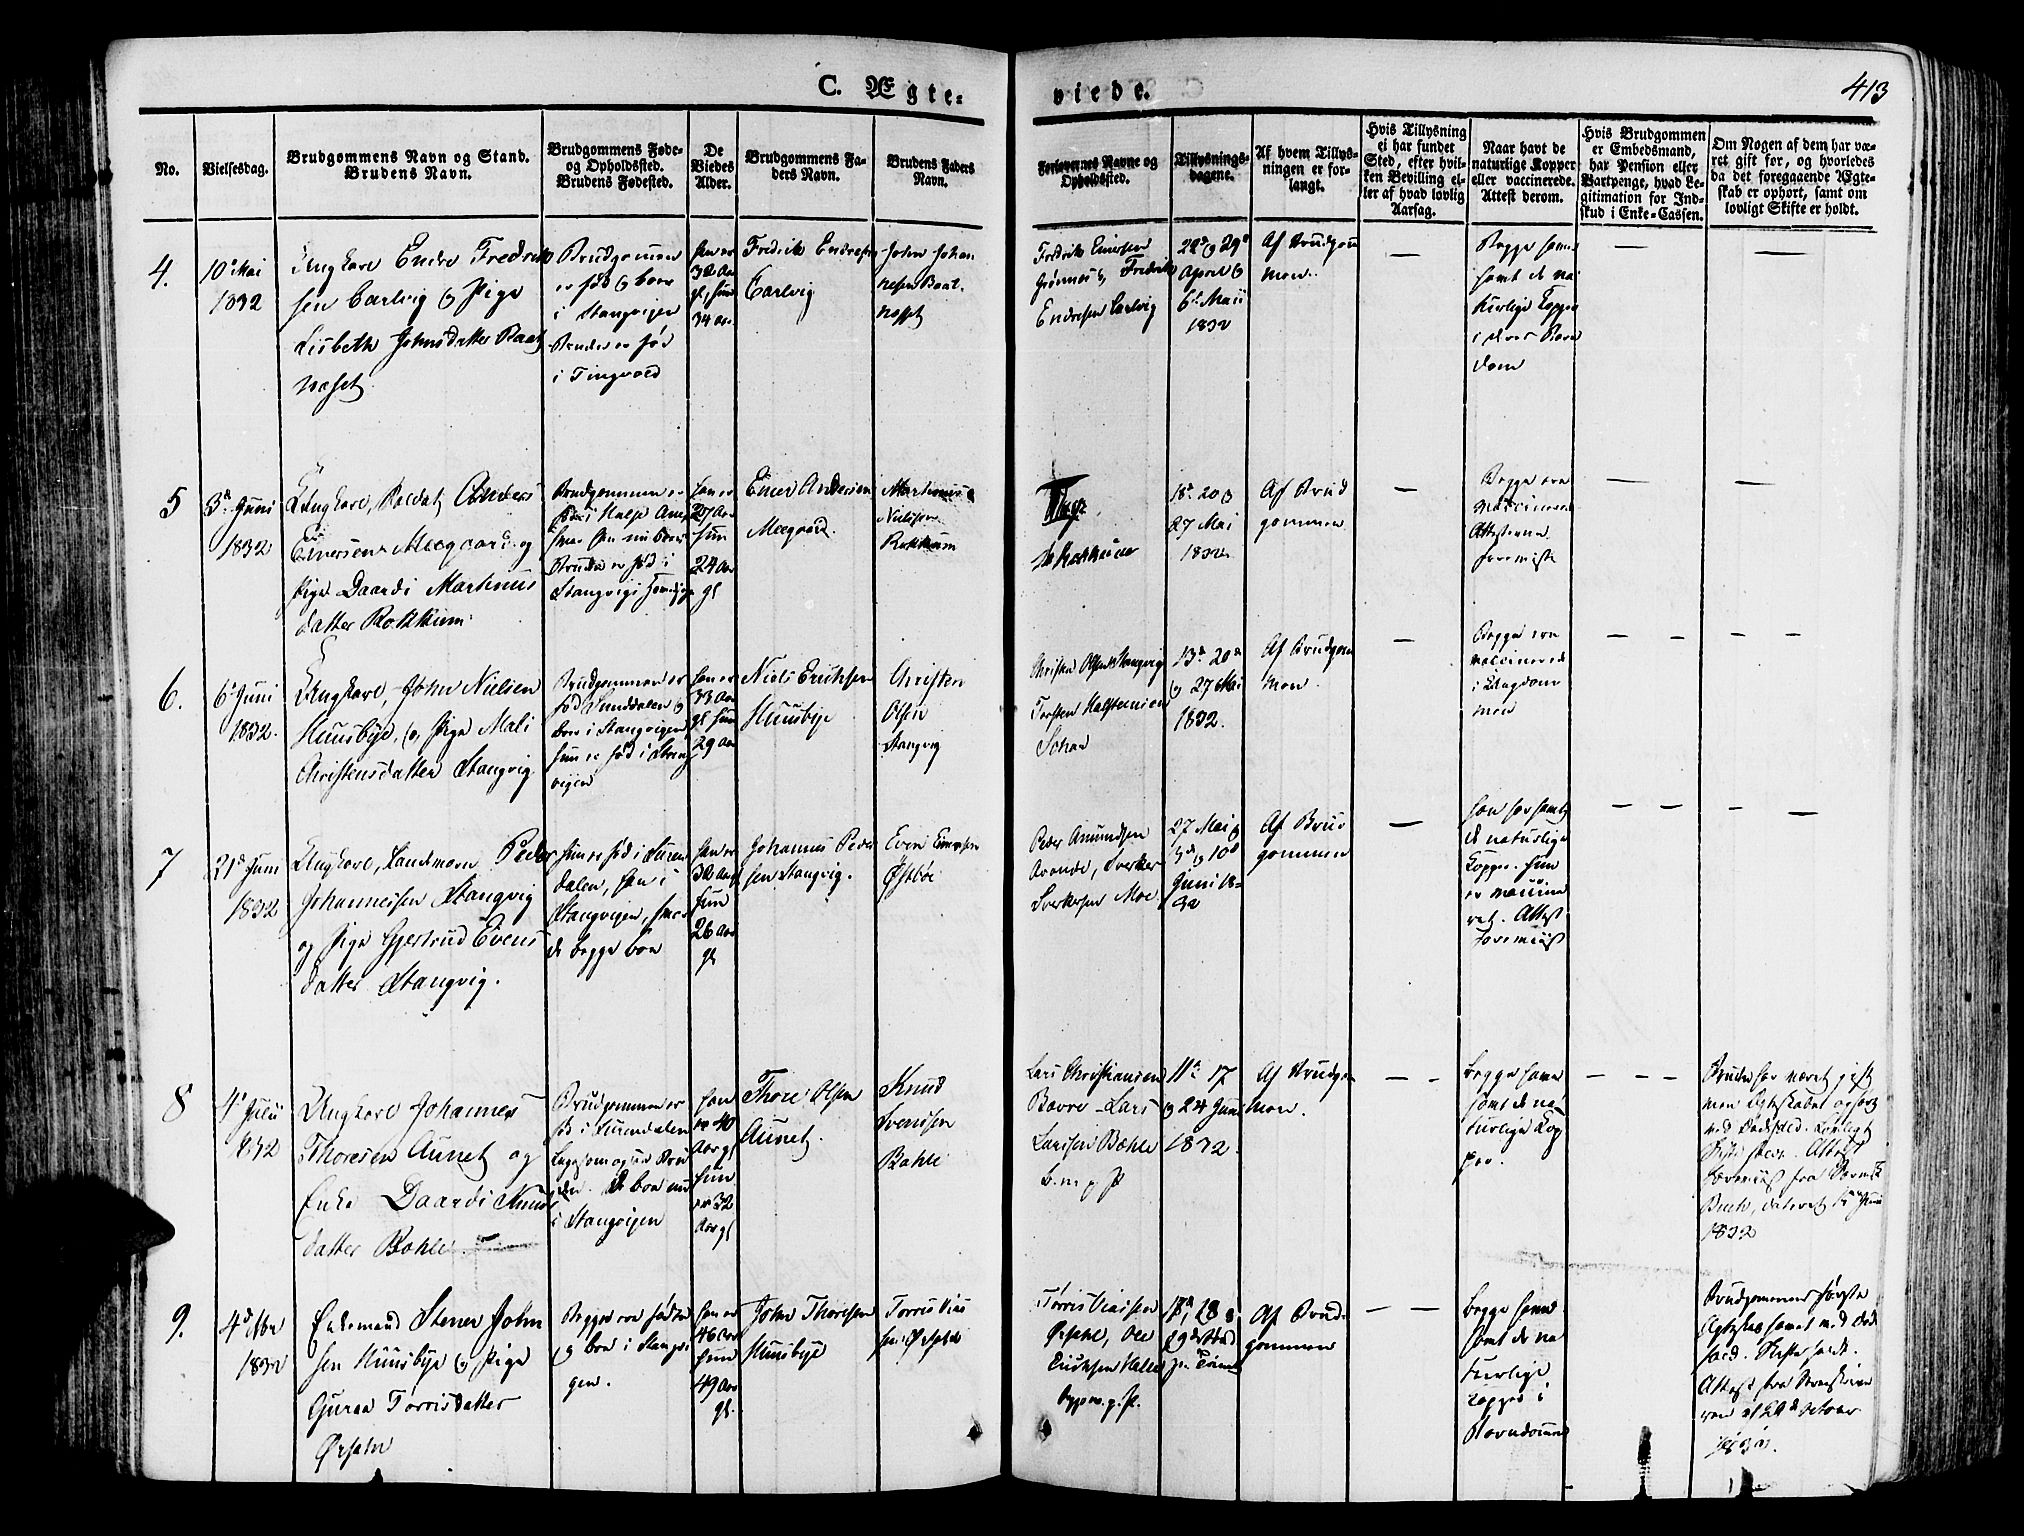 C. Ægte-
viede.
413
No.
Vielsesdag.
Brudgommens Navn og Stand.
Brudens Navn.
Brudgommens Føde-
og Opholdssted.
Brudens Fødested.
De
Viedes
Alder.
Brudgommens Fa-
ders Navn.
Brudens Faders
Navn.
Forlovernes Navne og
Opholdssted.
Tillysnings-
dagene.
Af hvem Tillys-
ningen er for-
langt.
Hvis Tillysning
ei har fundet
Sted, efter hvil-
ken Bevilling el-
ler af hvad lovlig
Aarsag.
Naar havt de
naturlige Kopper
eller vaccinerede.
Attest derom.
Hvis Brudgommen
er Embedsmand,
har Pension eller
Vartpenge, hvad Le-
gitimation for Ind-
skud i Enke-Cassen.
Om Nogen af dem har væ-
ret gift før, og hvorledes
da det foregaaende Ægte-
skab er ophørt, samt om
lovligt Skifte er holdt.
4.
10de Mai
1832
Ungkarl Endre Fredrik
sen Carlvig og Pige
Lisbeth Johnsdatter Baas
næset
Brudgommen
er fød og boer
i Stangvigen
Bruden er fød
i Tingvold
han er
32 Aar
gl, hun
34 Aar
Fredrik Endresen
Carlvig
John Johan
nesen Baas
næsset
Fredrik Einersen
Grønnes, Fredrik
Endresen Carlvig
22de og 29de
April og
6te Maii
1832
Af Brudgom
men.
Begge have
havt de na
turlige Kopper
i deres Barn
dom
5
3de Juni
1832
Ungkarl, Soldat Anders
Einersen Meegaard og
Pige Daardi Martinus
datter Rokkum.
Brudgommen er
fød i Halse
Bruden er fød i
han er
27 Aar
hun
24 Aar
gl
Einer Andersen
Meegaard.
Martinus
Nielsen
Rokkum
18de 20 og
27 Mai
1832
Af Brud
gommen
Begge ere
vaccineret
Attesterne
foreviste
6.
6te Juni
1832.
Ungkarl, John Nielsen
Huusbye, og Pige Mali
Christensdatter Stangvig
Brudgommen er
fød i Sunddalen og
boer i Stangvigen,
hun er fød i Stang
vigen
han er
33 Aar
gl hun
29 Aar
Niels Eriksen
Huusbye
Christen
Olsen
Stangvig
Christen Olsen Stangvig
Torsten Halsteinsen
13de 20de
og 27 Mai
1832.
Af Brudgom
men.
Begge ere
vaccinerede
i Ungdom
men
7
21de Juni
1832
Ungkarl, Landeværn Peder
Johannessen Stangvig
og Pige Gjertrud Evens
datter Stangvig.
Hun er fød i Suren
dalen, han i
Stangvigen, hvor
de begge boe
han er
32 Aar
hun
26 Aar
gl
Johannes Peder
sen Stangvig.
Even Einersen
Østbøe
Peder Amundsen
Aarnde, Sverker
Sverkersen Moe
27 Mai og
3de og 10de
Juni 18-
32
Af Brud
gommen
han har havt
de naturlige
Kopper. hun
er vaccine
ret. Attest
foreviist
8
4de Julii
1832
Ungkarl Johannes
Thoresen Aunet og
Enke Daardi Knuds
datter Bahle.
Brudgommen er
fød i Surendalen
ligesom ogsaa Bru
den. De boe nu
i Stangvigen
han
er 40
Aar gl
hun
er 32
Aar gl
Thore Olsen
Aunet.
Knud
Svendsen
Bahle
Lars Christiansen
Bøvre Lars
Larssen Bæhle
11te 17
og 24 Juni
1832.
Af Brudgom
men.
begge have
havt de na-
turlige Kop
per.
Bruden har været gift
men Ægteskabet ophørt
ved Dødsfald. Lovligt
Skifte skeet. Attest
foreviist fra
dateret Juni
1832
9.
4de Nov
1832
Enkemand Stener John
sen Huusbye og Pige
Guraa Torrisdatter
Ørsahl
Begge ere fødte
og boe i Stangvi
gen.
han er
46 Aar
hun
49 Aar
gl.
John Thoresen
Huusbye
Torris
sen Ørsahl
Torris
Ørsahl, Ole
Eriksen Halle
Af Brud-
gommen
begge have
havt de na
turlige
Kopper i
Barndommen
Brudgommens første
Ægteskab hævet ved Død
fald. Skifte holdt.
Attest fra Sorenskrive
ren af October